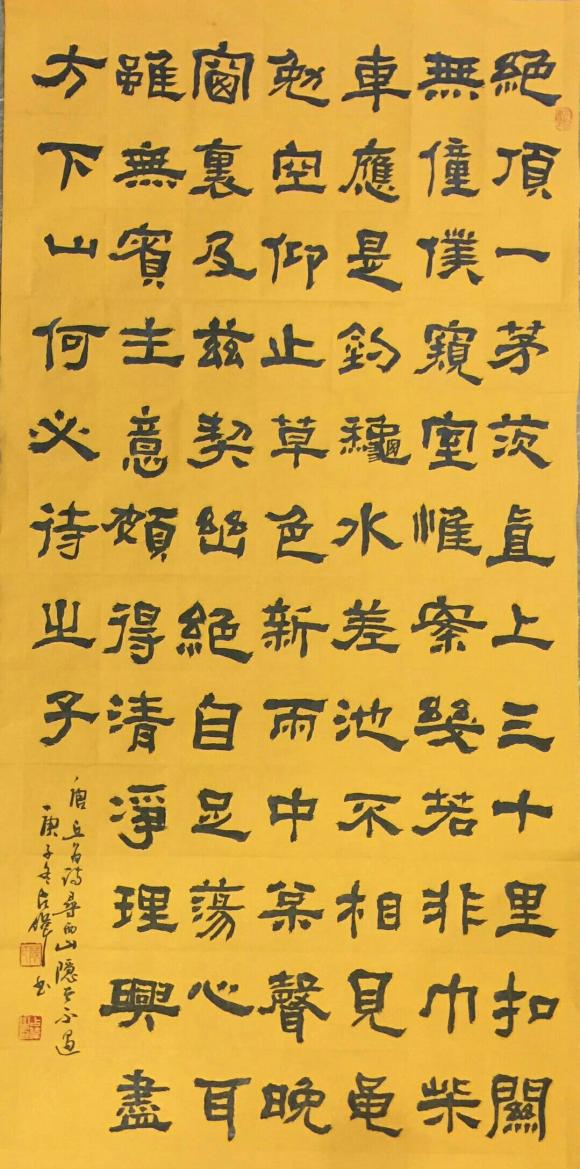 絕頂一茅茨直上三十里扣關
無僮僕窺室惟案幾若非巾柴
車應是釣龝水差池不相見黽
勉空仰止草色新雨中枀聲晚
窗裏及茲契幽絕自足蕩心耳
雖無賓主意頗得清淨理興盡
方下山何必待之子
唐丘为诗尋西山隐者不遇
庚子冬书